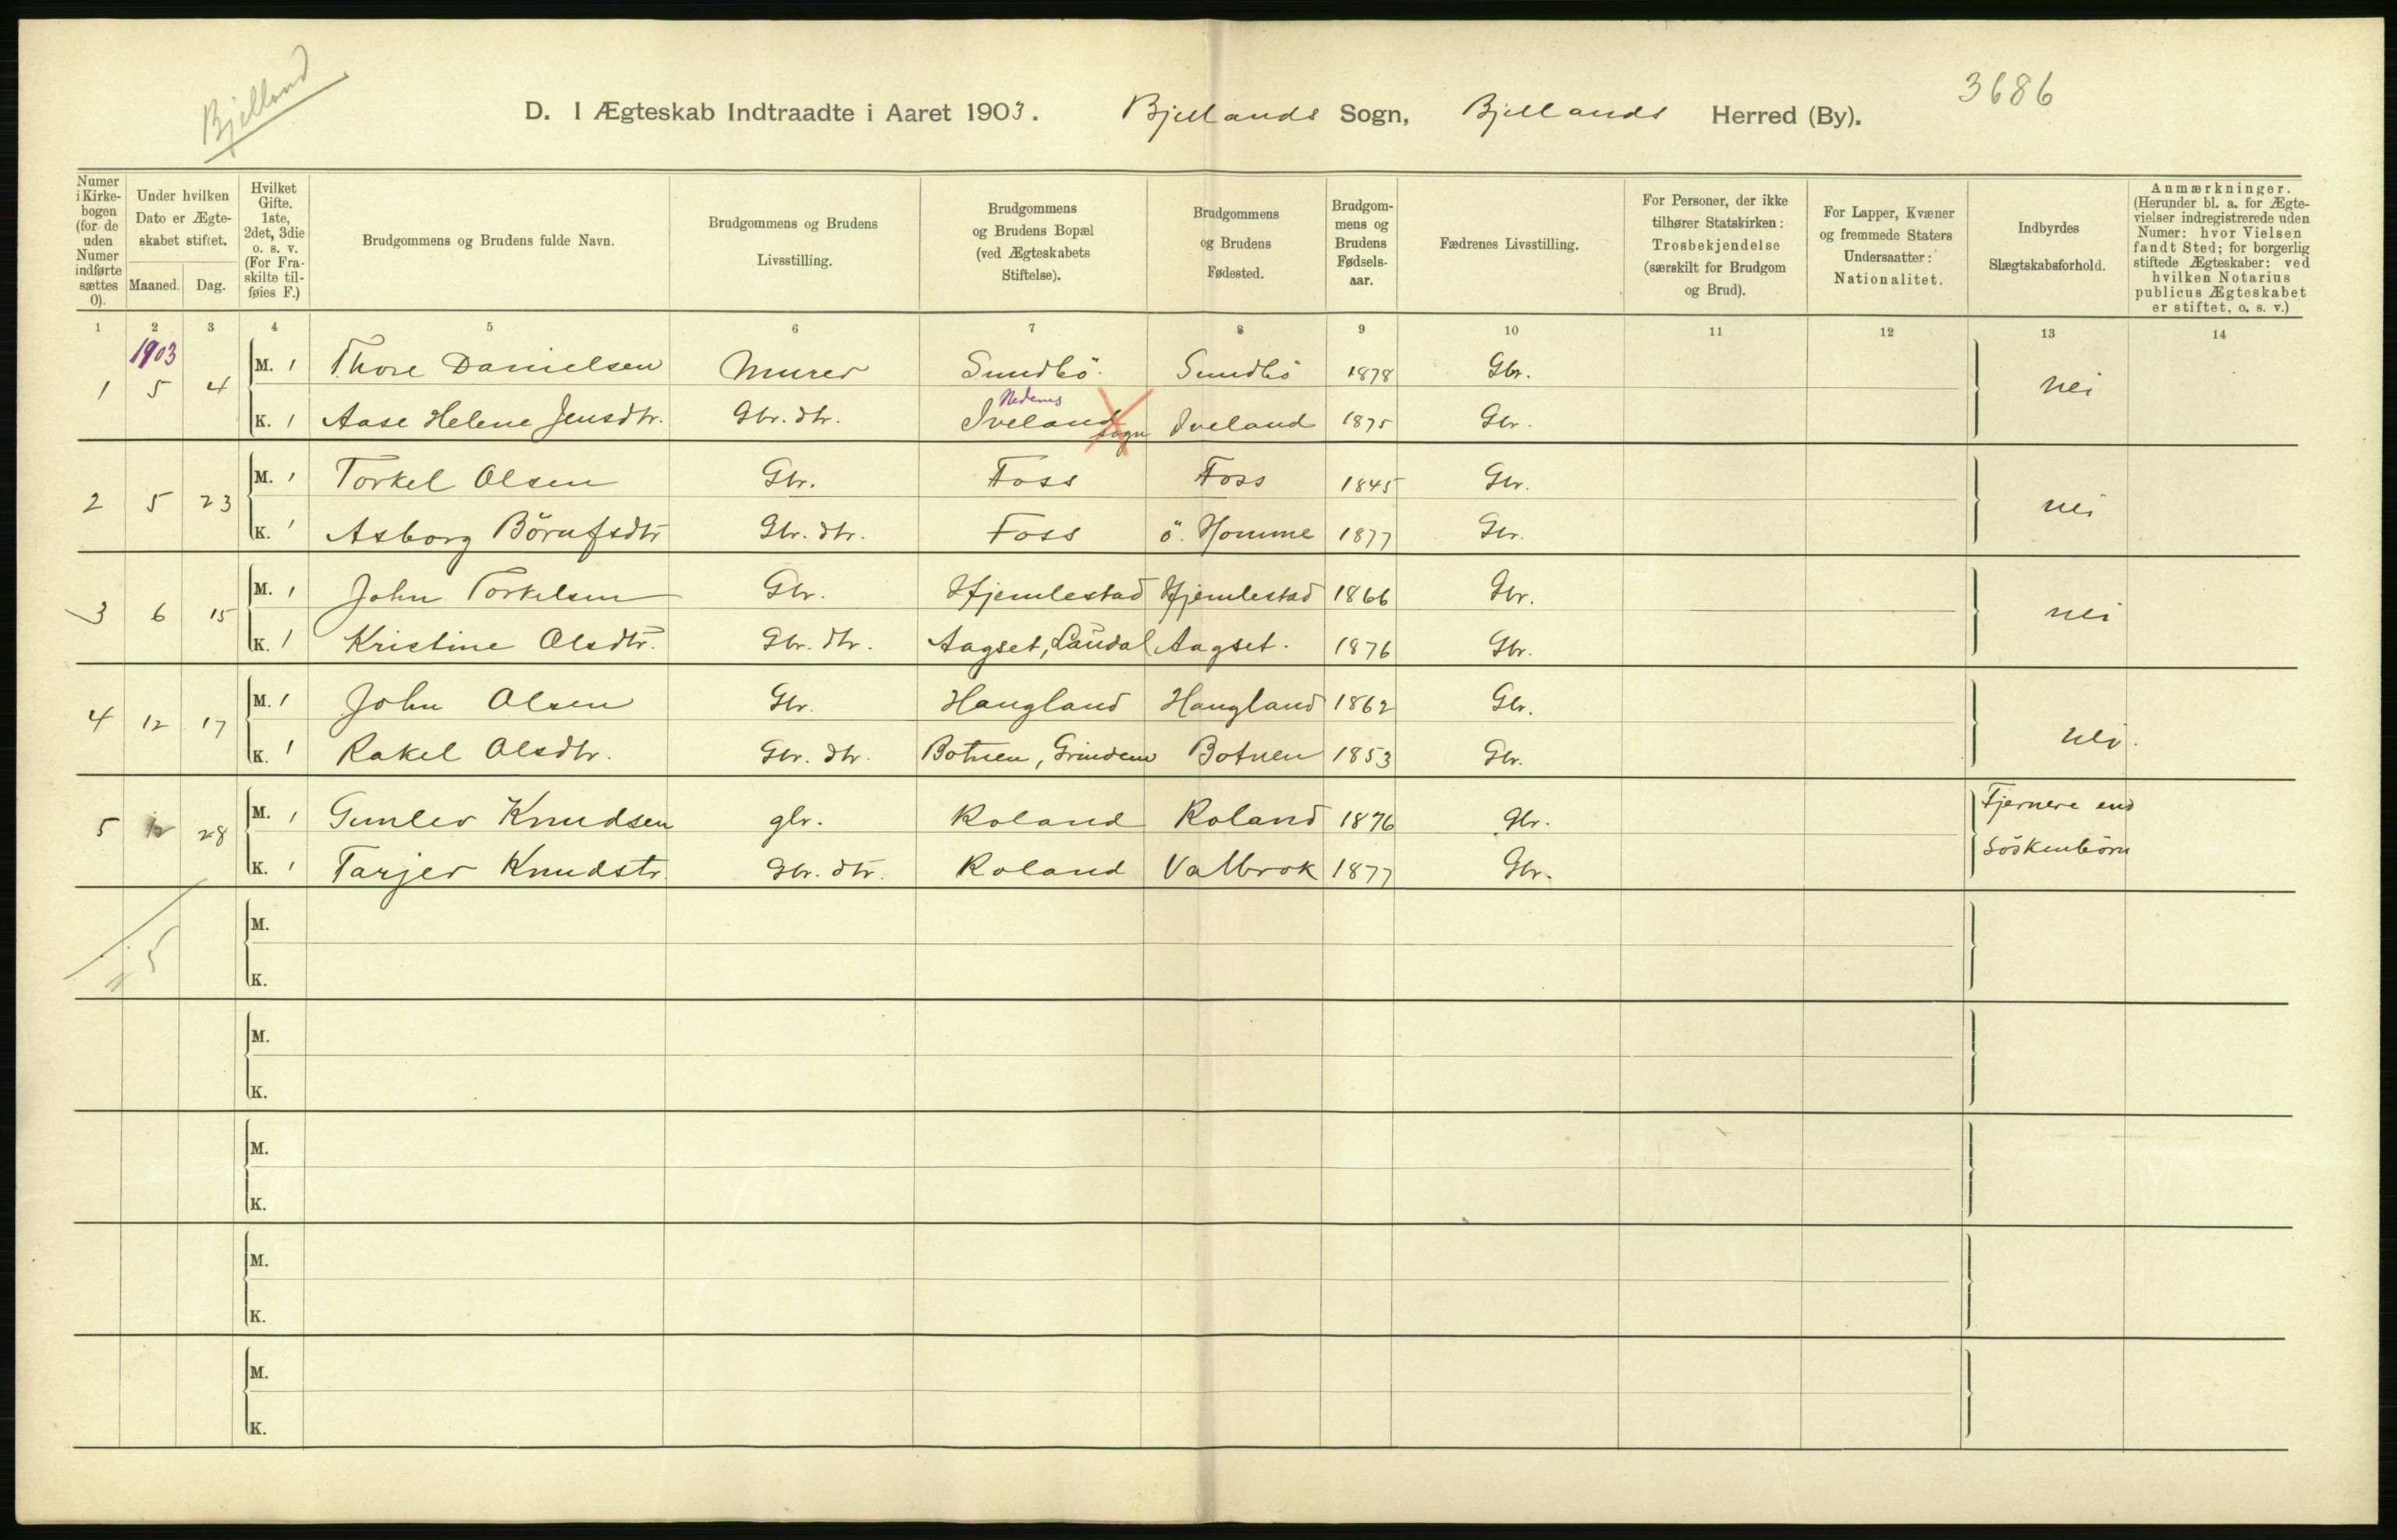 Bjelland
3686
D. I Ægteskab Indtraadte i Aaret 1903. Bjellands Sogn, Bjellands Herred (By).
Numer i Kirkebogen (for de uden Numer indførte sættes 0).
Under hvilken Dato er Ægteskabet stiftet.
Maaned. Dag.
Hvilket Gifte. 1ste, 2det, 3die o. s. v. (For Fraskilte tilføies F.)
Brudgommens og Brudens fulde Navn.
Brudgommens og Brudens Livsstilling.
Brudgommens og Brudens Bopæl (ved Ægteskabets Stiftelse).
Brudgommens og Brudens Fødested.
Brudgommens og Brudens Fødselsaar.
Fædrenes Livsstilling.
For Personer, der ikke tilhører Statskirken: Trosbekjendelse (særskilt for Brudgom og Brud).
For Lapper, Kvæner og fremmede Staters Undersaatter: Nationalitet.
Indbyrdes Slægtskabsforhold.
Anmærkninger. (Herunder bl. a. for Ægtevielser indregistrerede uden Numer: hvor Vielsen fandt Sted; for borgerlig stiftede Ægteskaber: ved hvilken Notarius publicus Ægteskabet er stiftet, o. s. v.)
1 2 3 4 5 6 7 8 9 10 11 12 13 14
1903
1 5 4 M. 1 Thore Danielsen Murer Sundbö Sundbö 1878 Gbr. nei
Nedenes
K. 1 Aase Helene Jensdtr. Gbr. dtr. Iveland sogn Iveland 1875 Gbr.
2 5 23 M. 1 Torkel Olsen Gbr. Foss Foss 1845 Gbr. nei
K. 1 Asborg Börufsdtr Gbr. dtr. Foss ö. Homme 1877 Gbr.
3 6 15 M. 1 John Torkelsen Gbr. Hjemlestad Hjemlestad 1866 Gbr. nei
K. 1 Kristine Olsdtr. Gbr. dtr. Aagset, Laudal Aagset. 1876 Gbr.
4 12 17 M. 1 John Olsen Gbr. Haugland Haugland 1862 Gbr. nei.
K. 1 Rakel Olsdtr. Gbr. dtr. Botnen, Grindem Botnen 1853 Gbr.
5 12 28 M. 1 Gunlev Knudsen gbr. Roland Roland 1876 Gbr. Fjernere end
Söskenbörn
K. 1 Tarjer Knudstr. Gbr. dtr. Roland Valbrok 1877 Gbr.
M.
5
K.
M.
K.
M.
K.
M.
K.
M.
K.